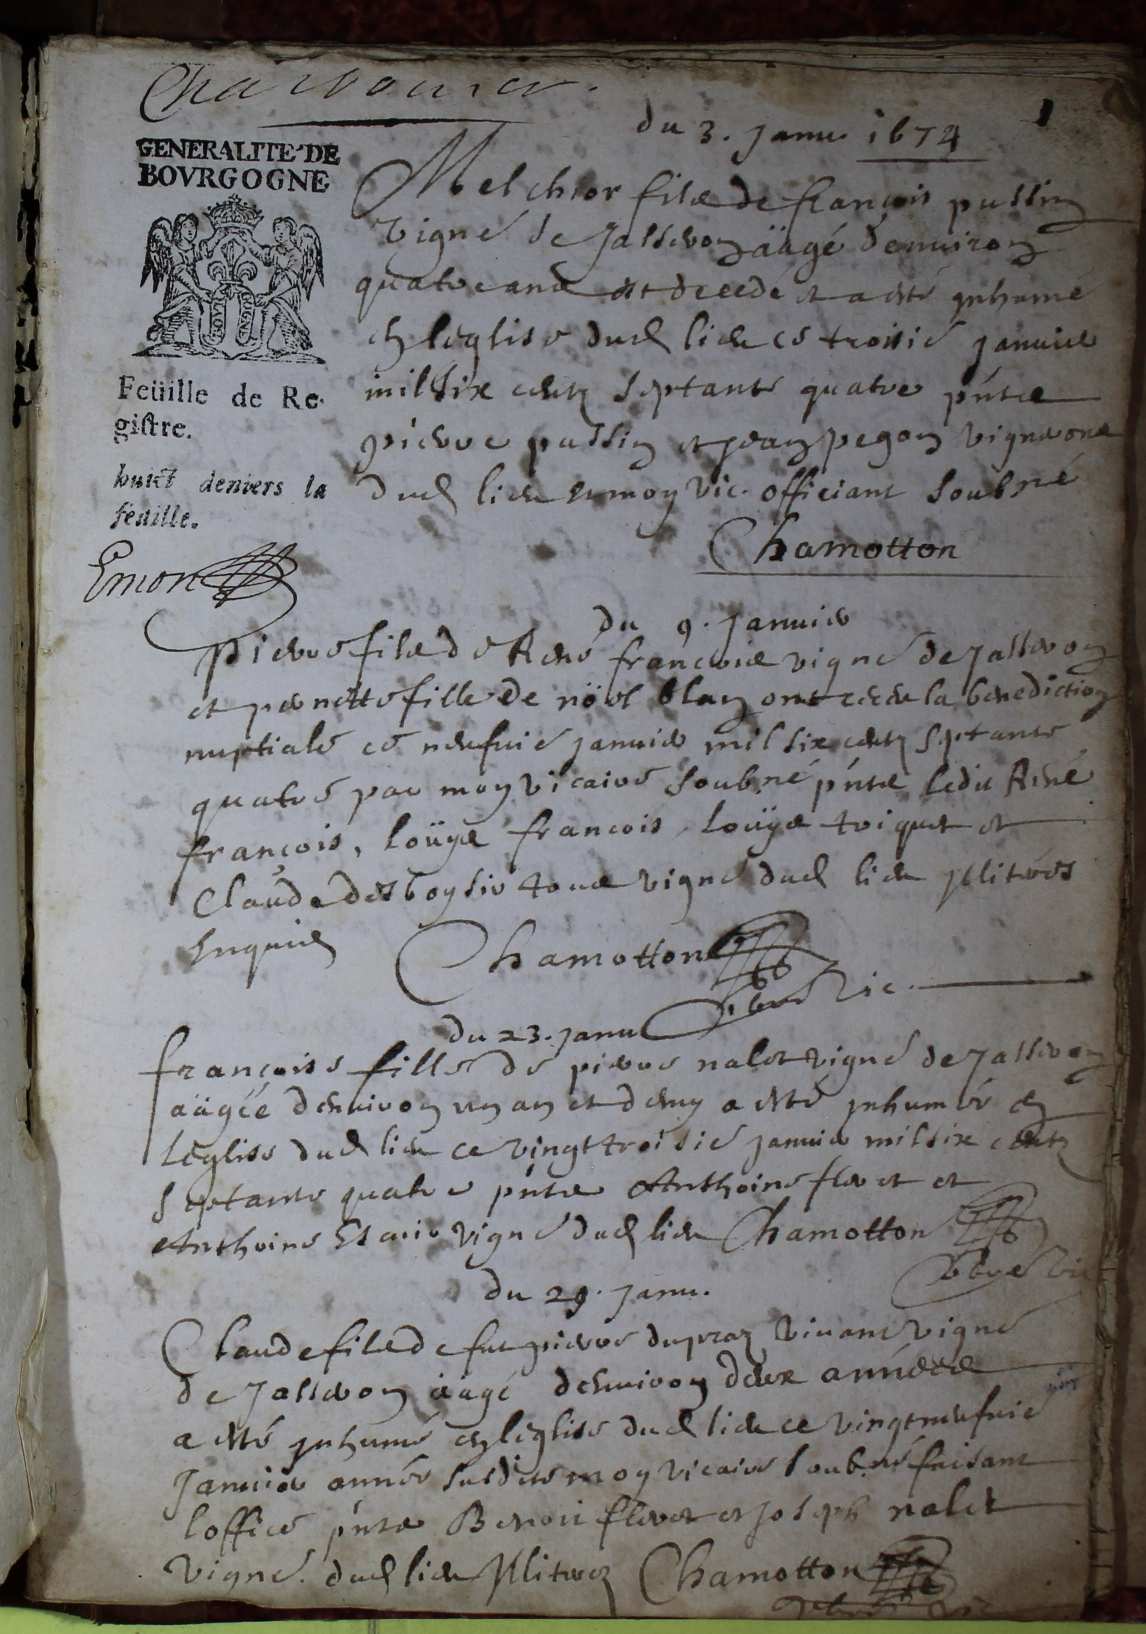 Charvour
1
GENERALITE DE
BOVRGOGNE
Feüille de Re-
gistre.
huict deniers la
feüille.
Emon
du 3. Janu. 1674
Melchior fils de françois pussin
vigné de Jasseron äagé denuiron
quatre ans est decedé et a esté inhumé
en leglise dud lieu ce troisié januier
mil six cents septante quatre pnts
pierre pussin et jean pegon vignerons
dud lieu et moy vic. officiant soubné
Chamotton
du 9. Januier
Pierre fils de René françois vigné de Jasseron
et pernette fille de nöel blan ont receu la benediction
nuptiale ce neufuié januier mil six cents septante
quatre par moy vicaire soubné pnts ledit René
françois, loüys françois, loüys et
Claude desboysio tous vigné dud lieu Illiteres
Enquis
Chamotton
vic.
du 23. Janu
françoise fille de pierre nalet vigné de Jasseron
äagée denuiron un an et demy a esté inhumée en
leglise dud lieu ce vingttroisié januier mil six cents
septante quatre pnts Anthoine floret et
Anthoine vigné dud lieu Chamotton
du 29. Janu.
Claude fils de fut pierre dupraz viuant vigné
de Jasseron äagé denuiron deux années
a esté inhumé en leglise dud lieu ce vingtneufuié
Januier année susdite moy vicaire soubné faisant
loffice pnts Benoit floret et Joseph nalet
vigné. dud lieu Illiterez Chamotton